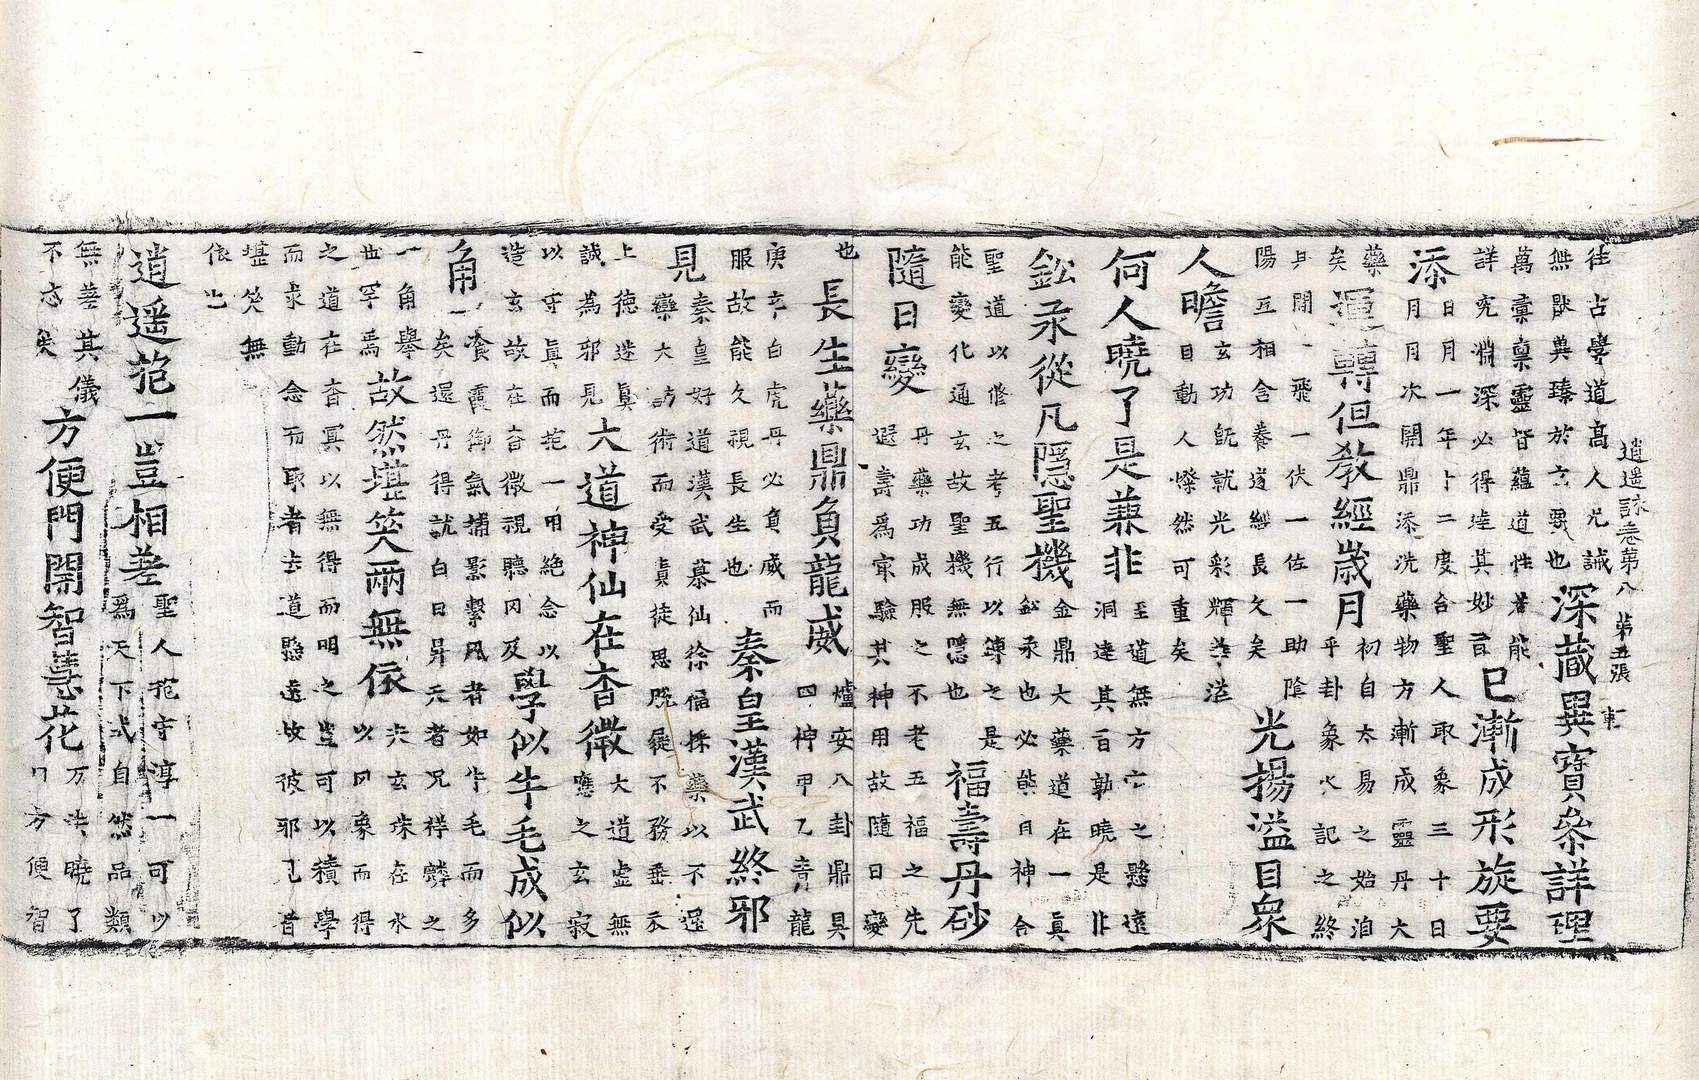 逍遥詠卷第八 第五張 車
往古學道髙人尤誠
無默典臻於玄要也
深藏異寶叅詳理
萬彙稟靈皆藴道性若能
詳究淵深必得達其妙旨
已漸成形旋要
添
日月一年十二度合聖人取象三十日
月月次開鼎添洗藥物方漸成靈丹大
藥
矣
運轉但教經歲月
初自太易之始洎
乎卦象火記之終
月閒一飛一伏一佐一助陰
陽互相合養遂經長久矣
光揚溢目衆
人瞻
玄功既就光彩輝華溢
目動人燦然可重矣
何人曉了是兼非
至道無方亡之懸遠
洞達其旨勤曉是非
鈆汞從凡隱聖機
金鼎大藥道在一真
鈆汞也必能日神合
聖道以修之考五行以鍊之是
能變化通玄故聖機無隱也
福壽丹砂
隨日變
丹藥功成服之不老五福之先
遐壽爲宗驗其神用故隨日變
也
長生藥鼎負龍威
爐安八卦鼎具
四神甲乙青龍
庚辛白虎丹必負威而
服故能久視長生也
秦皇漢武終邪
見
秦皇好道漢武慕仙徐福採藥以不還
欒大訪術而受責徒思脫屣不務垂衣
上德迷真
誠爲邪見
大道神仙在杳微
大道虛無
應之玄寂
以守真而抱一用絶念以
造玄故在杳微視聽罔及
學似牛毛成似
角
飡霞御氣捕影繫風者如牛毛而多
一矣還丹得就白日昇天者况祥麟之
一角舉
世罕焉
故然堪笑兩無依
夫玄珠在水
以罔象而得
之道在杳冥以無得而明之豈可以積學
而求動念而取者去道懸遠故彼邪見昔
堪笑無
依也
逍遥抱一豈相差
聖人抱守淳一可以
爲天下式自然品類
無差其儀
不忒矣
方便門開智慧花
万法曉了
方便智